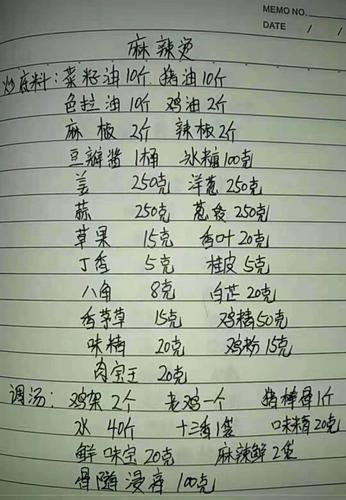 MEMO NO.
DATE / /
麻辣烫
炒底料：菜籽油10斤 猪油10斤
色拉油10斤 鸡油2斤
麻椒 2斤 辣椒2斤
豆瓣酱 1桶 冰糖100克
姜 250克 洋葱250克
蒜 250克 葱段250克
草果 15克 香叶20克
丁香 5克 桂皮5克
八角 8克 白芷20克
香茅草 15克 鸡精50克
味精 20克 鸡粉15克
肉宝王 20克
调汤：鸡架2个 老鸡一个 猪棒骨1斤
水 40斤 十三香1袋 味精20克
鲜味宝20克 麻辣鲜2袋
骨髓浸膏 100克